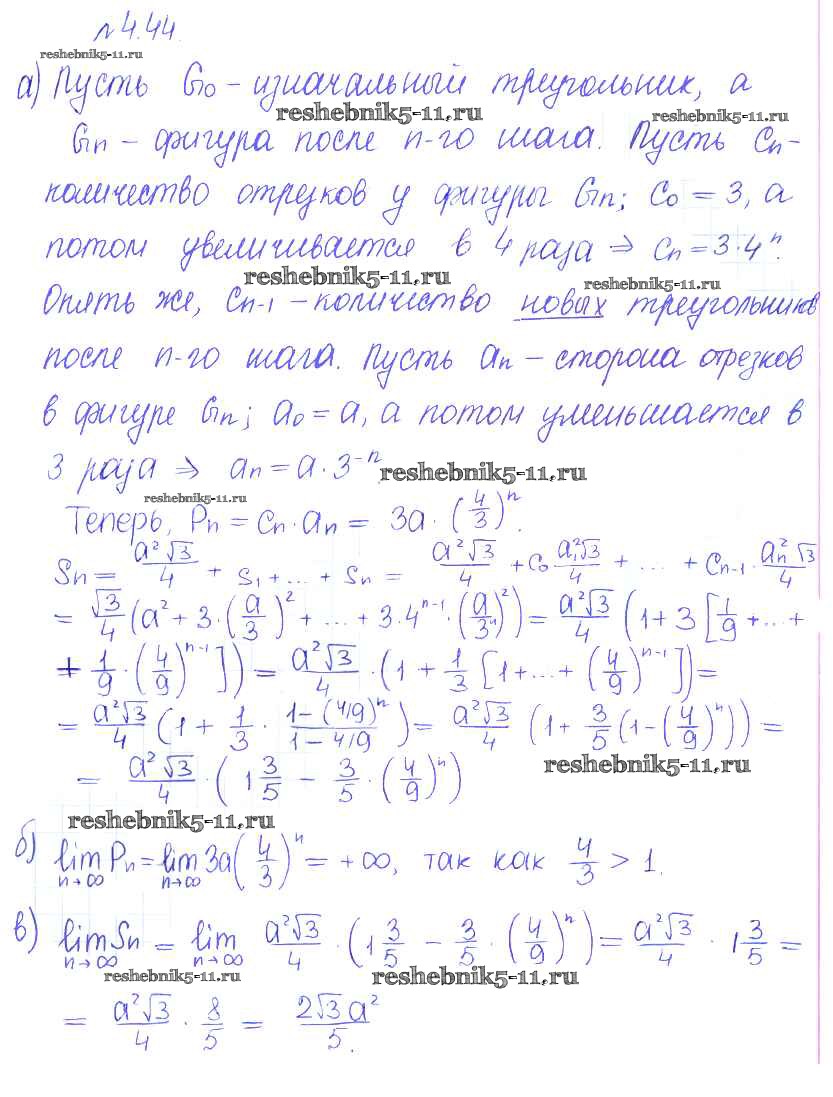 № 4.44.
reshebnik5-11.ru
а) Пусть G₀ – изначальный треугольник, а
reshebnik5-11.ru reshebnik5-11.ru
Gₙ – фигура после n-го шага. Пусть Cₙ –
количество отрезков у фигуры Gₙ; C₀ = 3, а
потом увеличивается в 4 раза ⇒ Cₙ = 3·4ⁿ.
reshebnik5-11.ru reshebnik5-11.ru
Опять же, Cₙ₋₁ – количество новых треугольников
после n-го шага. Пусть aₙ – сторона отрезков
в фигуре Gₙ; a₀ = a, а потом уменьшается в
3 раза ⇒ aₙ = a·3⁻ⁿ. reshebnik5-11.ru
reshebnik5-11.ru
Теперь, Pₙ = Cₙ·aₙ = 3a·(4/3)ⁿ.
Sₙ = a²√3/4 + S₁ + ... + Sₙ = a²√3/4 + C₀ a₁²√3/4 + ... + Cₙ₋₁ · aₙ²√3/4
= √3/4 (a² + 3·(a/3)² + ... + 3·4ⁿ⁻¹·(a/3ⁿ)²) = a²√3/4 (1 + 3 [1/9 + ... +
+ 1/9 · (4/9)ⁿ⁻¹]) = a²√3/4 · (1 + 1/3 [1 + ... + (4/9)ⁿ⁻¹]) =
= a²√3/4 (1 + 1/3 · (1 – (4/9)ⁿ)/(1 – 4/9)) = a²√3/4 (1 + 3/5 (1 – (4/9)ⁿ)) =
= a²√3/4 · (1 3/5 – 3/5 · (4/9)ⁿ) reshebnik5-11.ru
reshebnik5-11.ru
б) lim n→∞ Pₙ = lim n→∞ 3a(4/3)ⁿ = +∞, так как 4/3 > 1.
в) lim n→∞ Sₙ = lim n→∞ a²√3/4 · (1 3/5 – 3/5 · (4/9)ⁿ) = a²√3/4 · 1 3/5 =
reshebnik5-11.ru reshebnik5-11.ru
= a²√3/4 · 8/5 = 2√3a²/5.